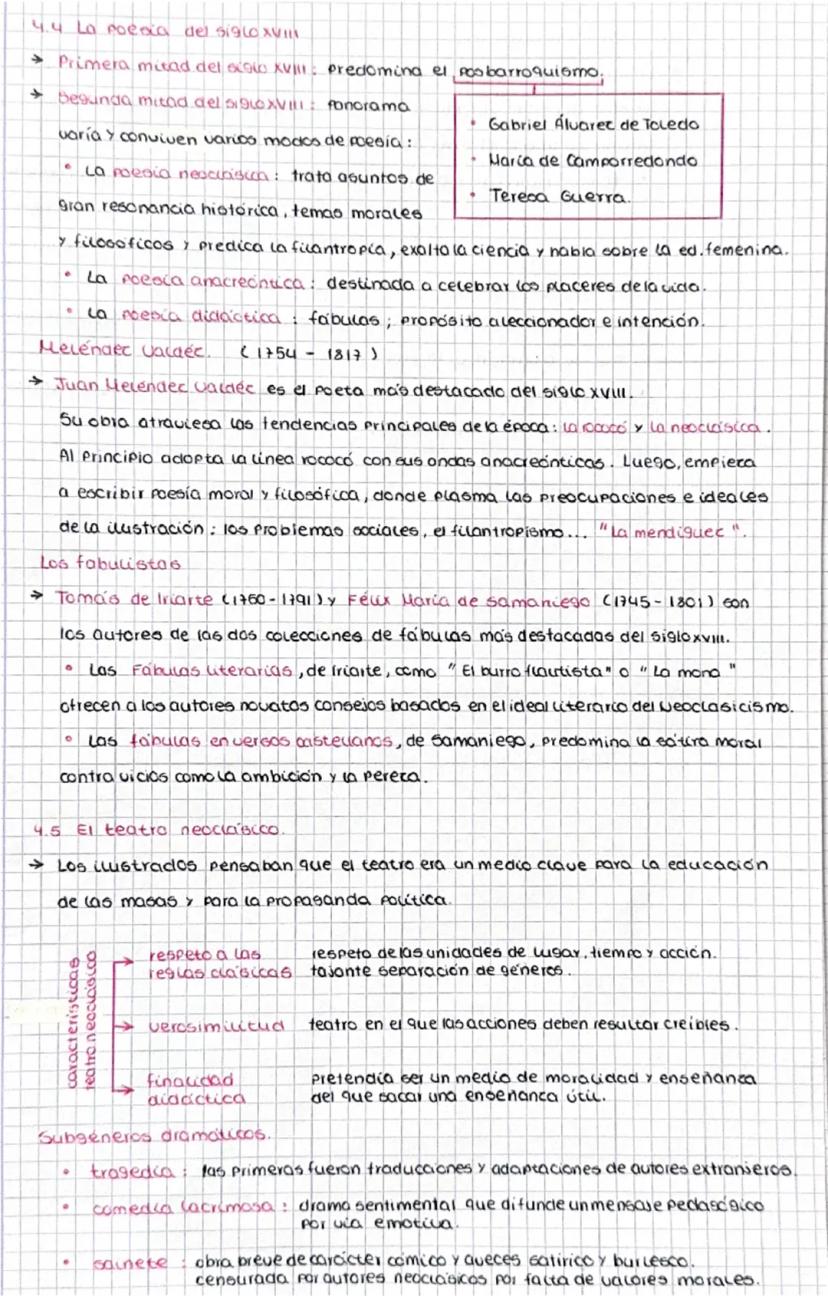 4.4 La poesía del siglo XVIII
→ Primera mitad del siglo XVIII: predomina el posbarroquismo.
• Gabriel Álvarez de Toledo
• María de Camporredondo
• Teresa Guerra.
→ Segunda mitad del siglo XVIII: panorama
varía y conviven varios modos de poesía:
• La poesía neoclásica: trata asuntos de
gran resonancia histórica, temas morales
y filosoficos y predica la filantropía, exalto la ciencia y habla sobre la ed. femenina.
• La poesía anacreóntica: destinada a celebrar los placeres de la vida.
• La poesía didáctica: fábulas; propósito aleccionador e intención.
Meléndez Valdéz. (1754 - 1817)
→ Juan Meléndez Valdéz es el poeta más destacado del siglo XVIII.
Su obra atraviesa las tendencias principales de la época: la rococó y la neoclásica.
Al principio adopta la línea rococó con sus ondas anacreónticas. Luego, empieza
a escribir poesía moral y filosófica, donde plasma las preocupaciones e ideales
de la ilustración: los problemas sociales, el filantropismo... "La mendiguez".
Los fabulistas
→ Tomás de Iriarte (1750-1791) y Félix María de Samaniego (1745-1801) son
los autores de las dos colecciones de fábulas más destacadas del siglo XVIII.
• Las Fábulas literarias, de Iriarte, como "El burro flautista" o "La mona"
ofrecen a los autores novatos consejos basados en el ideal literario del Neoclasicismo.
• Las fábulas en versos castellanos, de Samaniego, predomina la sátira moral
contra vicios como la ambición y la pereza.
4.5 El teatro neoclásico.
→ Los ilustrados pensaban que el teatro era un medio clave para la educación
de las masas y para la propaganda política.
características
teatro neoclásico
→ respeto a las reglas clásicas
respeto de las unidades de lugar, tiempo y acción.
tajante separación de géneros.
→ verosimilitud teatro en el que las acciones deben resultar creíbles.
→ finalidad didáctica
Pretendía ser un medio de moralidad y enseñanza
del que sacar una enseñanza útil.
Subgéneros dramáticos.
• tragedia: las primeras fueron traducciones y adaptaciones de autores extranjeros.
• comedia lacrimosa: drama sentimental que difunde un mensaje pedagógico
por vía emotiva.
• sainete: obra breve de carácter cómico y aveces satírico y burlesco.
censurada por autores neoclásicos por falta de valores morales.